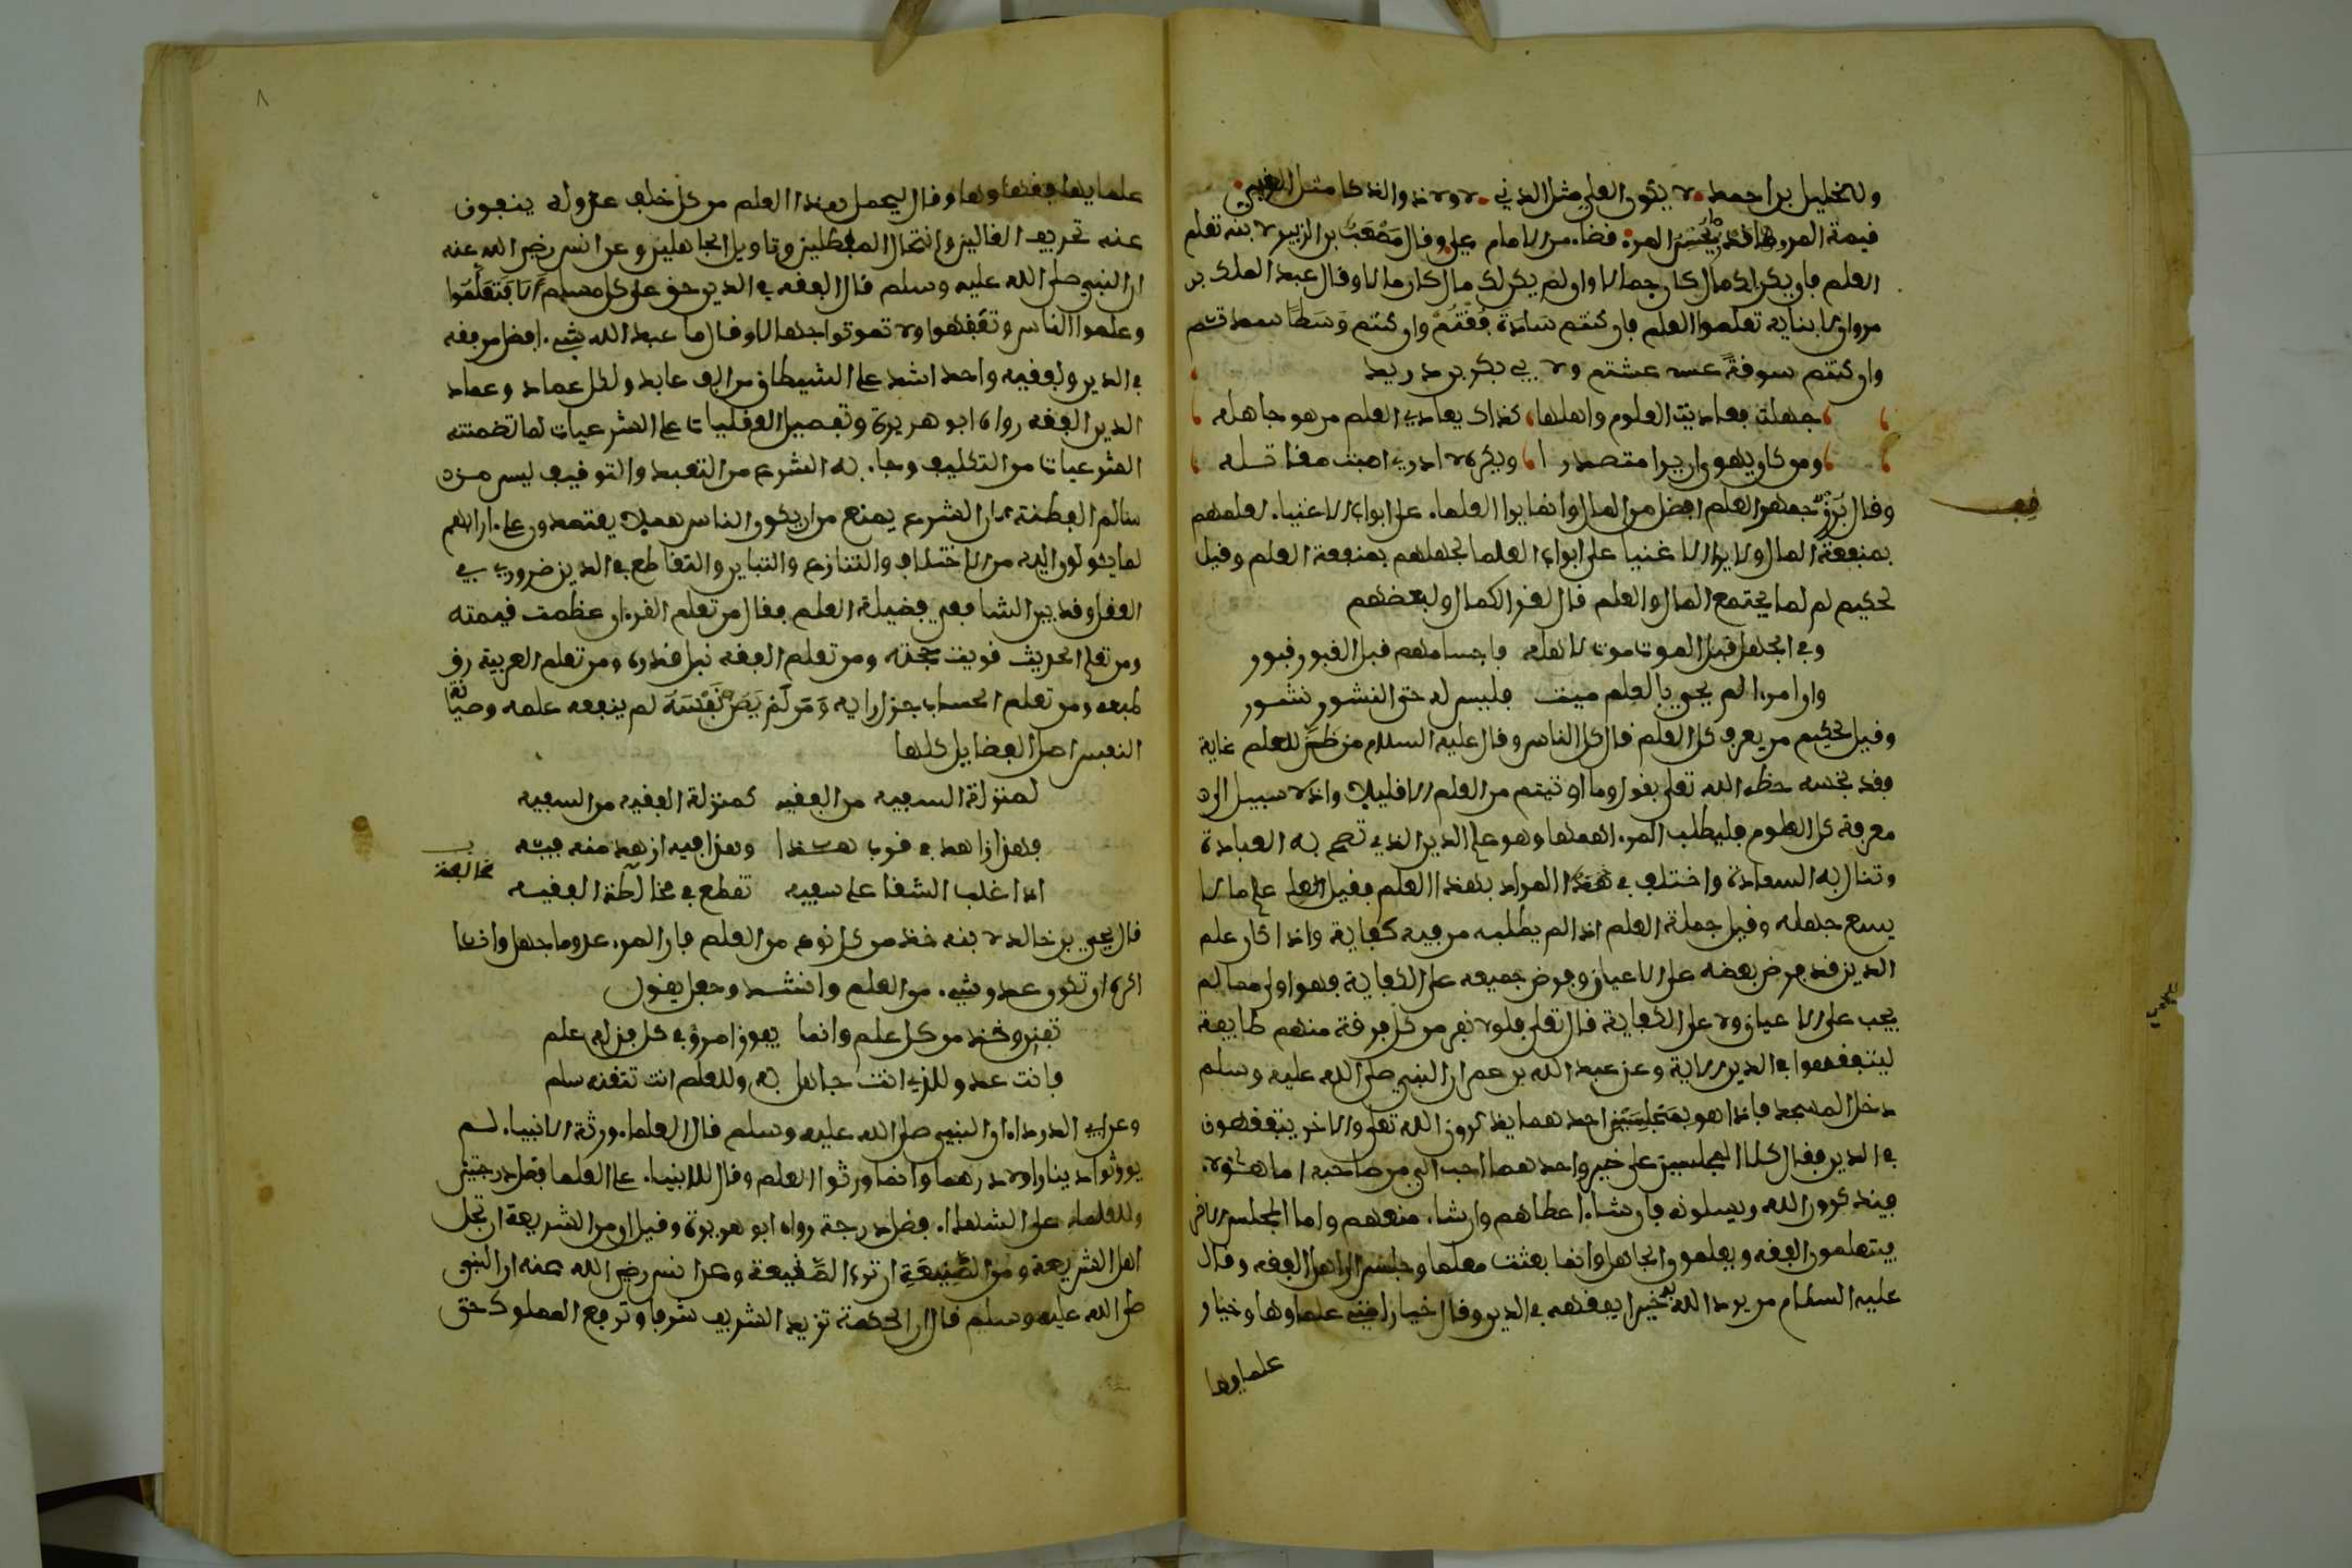 وللخليل بن احمد لا يكون العلي مثل الدني لا ولا ذو الذكا مثل الغبي
قيمة المرء قدر ما يحسن المرء قضاء من الامام علي وقال مصعب بن الزبير لابنه تعلم
العلم فان يكن لك مال كان جمالا وان لم يكن لك مال كان مالا وقال عبد الملك بن
مروان لابنايه تعلموا العلم فان كنتم سادة فقتم وان كنتم وسطا سدتم
وان كنتم سوقة عشتم ولابي بكر بن دريد
جهلت فعاديت العلوم واهلها كذاك يعادي العلم من هو جاهله
ومن كان يهوى ان يرا متصدرا ويكره لا ادري اصبت مقاتله
قف
وقال بزرجمهر العلم افضل من المال وانما يرا العلماء على ابواب الاغنياء لعلمهم
بمنفعة المال ولا يرا الاغنيا على ابواب العلما لجهلهم بمنفعة العلم وقيل
لحكيم لم لما يجتمع المال والعلم قال لعز الكمال ولبعضهم
وفي الجهل قبل الموت موت لاهله فاجسامهم قبل القبور قبور
وان امرءا لم يحي بالعلم ميت فليس له حتى النشور نشور
وقيل لحكيم من يعرف كل العلم قال كل الناس وقال عليه السلام من ظن للعلم غاية
فقد بخسه حظه الله تعلى يقول وما اوتيتم من العلم الا قليلا واذ لا سبيل الى
معرفة كل العلوم فليطلب المرء اهمها وهو علم الدين الذي تصح به العبادة
وتنال به السعادة واختلف في هذا المراد بهذا العلم فقيل العلم على ما لا
يسع جهله وقيل جملة العلم اذا لم يطلبه من فيه كفاية واذا كان علم
الدين قد فرض بعضه على الاعيان وفرض جميعه على الكفاية فهو اولى مما لم
يجب على الاعيان ولا على الكفاية قال تعلى فلولا نفر من كل فرقة منهم طايفة
ليتفقهوا في الدين الاية وعن عبد الله بن عمر ان النبي صلى الله عليه وسلم
دخل المسجد فاذا هو بمجلسين احدهما يذكرون الله تعلى والاخر يتفقهون
في الدين فقال كلا المجلسين على خير واحدهما احب الي من صاحبه اما هؤلاء
فيذكرون الله ويسلونه فان شاء اعطاهم وان شاء منعهم واما المجلس الاخر
فيتعلمون الفقه ويعلمون الجاهل وانما بعثت معلما وجلس الى اهل الفقه وقال
عليه السلام من يرد الله به خيرا يفقهه في الدين وقال خيار امتي علماوها وخيار
علماوها
٨
علمايها فقهاوها وقال ليحمل هذا العلم من كل خلف عدوله ينفون
عنه تحريف الغالين وانتحال المبطلين وتاويل الجاهلين وعن انس رضي الله عنه
ان النبي صلى الله عليه وسلم قال الفقه في الدين حق على كل مسلم الا فتعلموا
وعلموا الناس وتفقهوا ولا تموتوا جهالا وقال ما عبد الله بشيء افضل من فقه
في الدين ولفقيه واحد اشد على الشيطان من الف عابد ولكل عماد وعماد
الدين الفقه رواه ابو هريرة وتفضيل العقليات على الشرعيات لما تضمنته
الشرعيات من التكليف وجاء به الشرع من التعبد والتوقيف ليس من
سالم الفطنة لان الشرع يمنع من ان يكون الناس هملا يعتمدون على اراىهم
لما يئولون اليه من الاختلاف والتنازع والتباين والتقاطع في الدين ضروري في
العقل وقد بين الشافعي فضيلة العلم فقال من تعلم القرءان عظمت قيمته
ومن تعلم الحديث قويت حجته ومن تعلم الفقه نبل قدره ومن تعلم العربية رق
طبعه ومن تعلم الحساب جزل رايه ومن لم يصن نفسه لم ينفعه علمه وصيانة
النفس اصل الفضايل كلها
لمنزلة السفيه من الفقيه كمنزلة الفقيه من السفيه
فهذا زاهد في قرب هذا وهذا فيه ازهد منه فيه
اذا غلب الشقا على سفيه تقطع في مخالطة الفقيه
مخالفة
قال يحيى بن خالد لابنه خذ من كل نوع من العلم فان المرء عدو ما جهل وانا
اكره ان تكون عدو شيء من العلم وانشد وجعل يقول
تفنن وخذ من كل علم وانما يفوق امرؤ في كل فن له علم
فانت عدو للذي انت جاهل به وللعلم انت تتقنه سلم
وعن ابي الدرداء ان النبي صلى الله عليه وسلم قال العلماء ورثة الانبياء لم
يورثوا دينارا ولا درهما وانما ورثوا العلم وقال للانبياء على العلما فضل درجتين
وللعلماء على الشهداء فضل درجة رواه ابو هريرة وقيل ان من الشريعة ان تجل
اهل الشريعة ومن الصنيعة ان ترب الصنيعة وعن انس رضي الله عنه ان النبي
صلى الله عليه وسلم قال ان الحكمة تزيد الشريف شرفا وترفع المملوك حتى